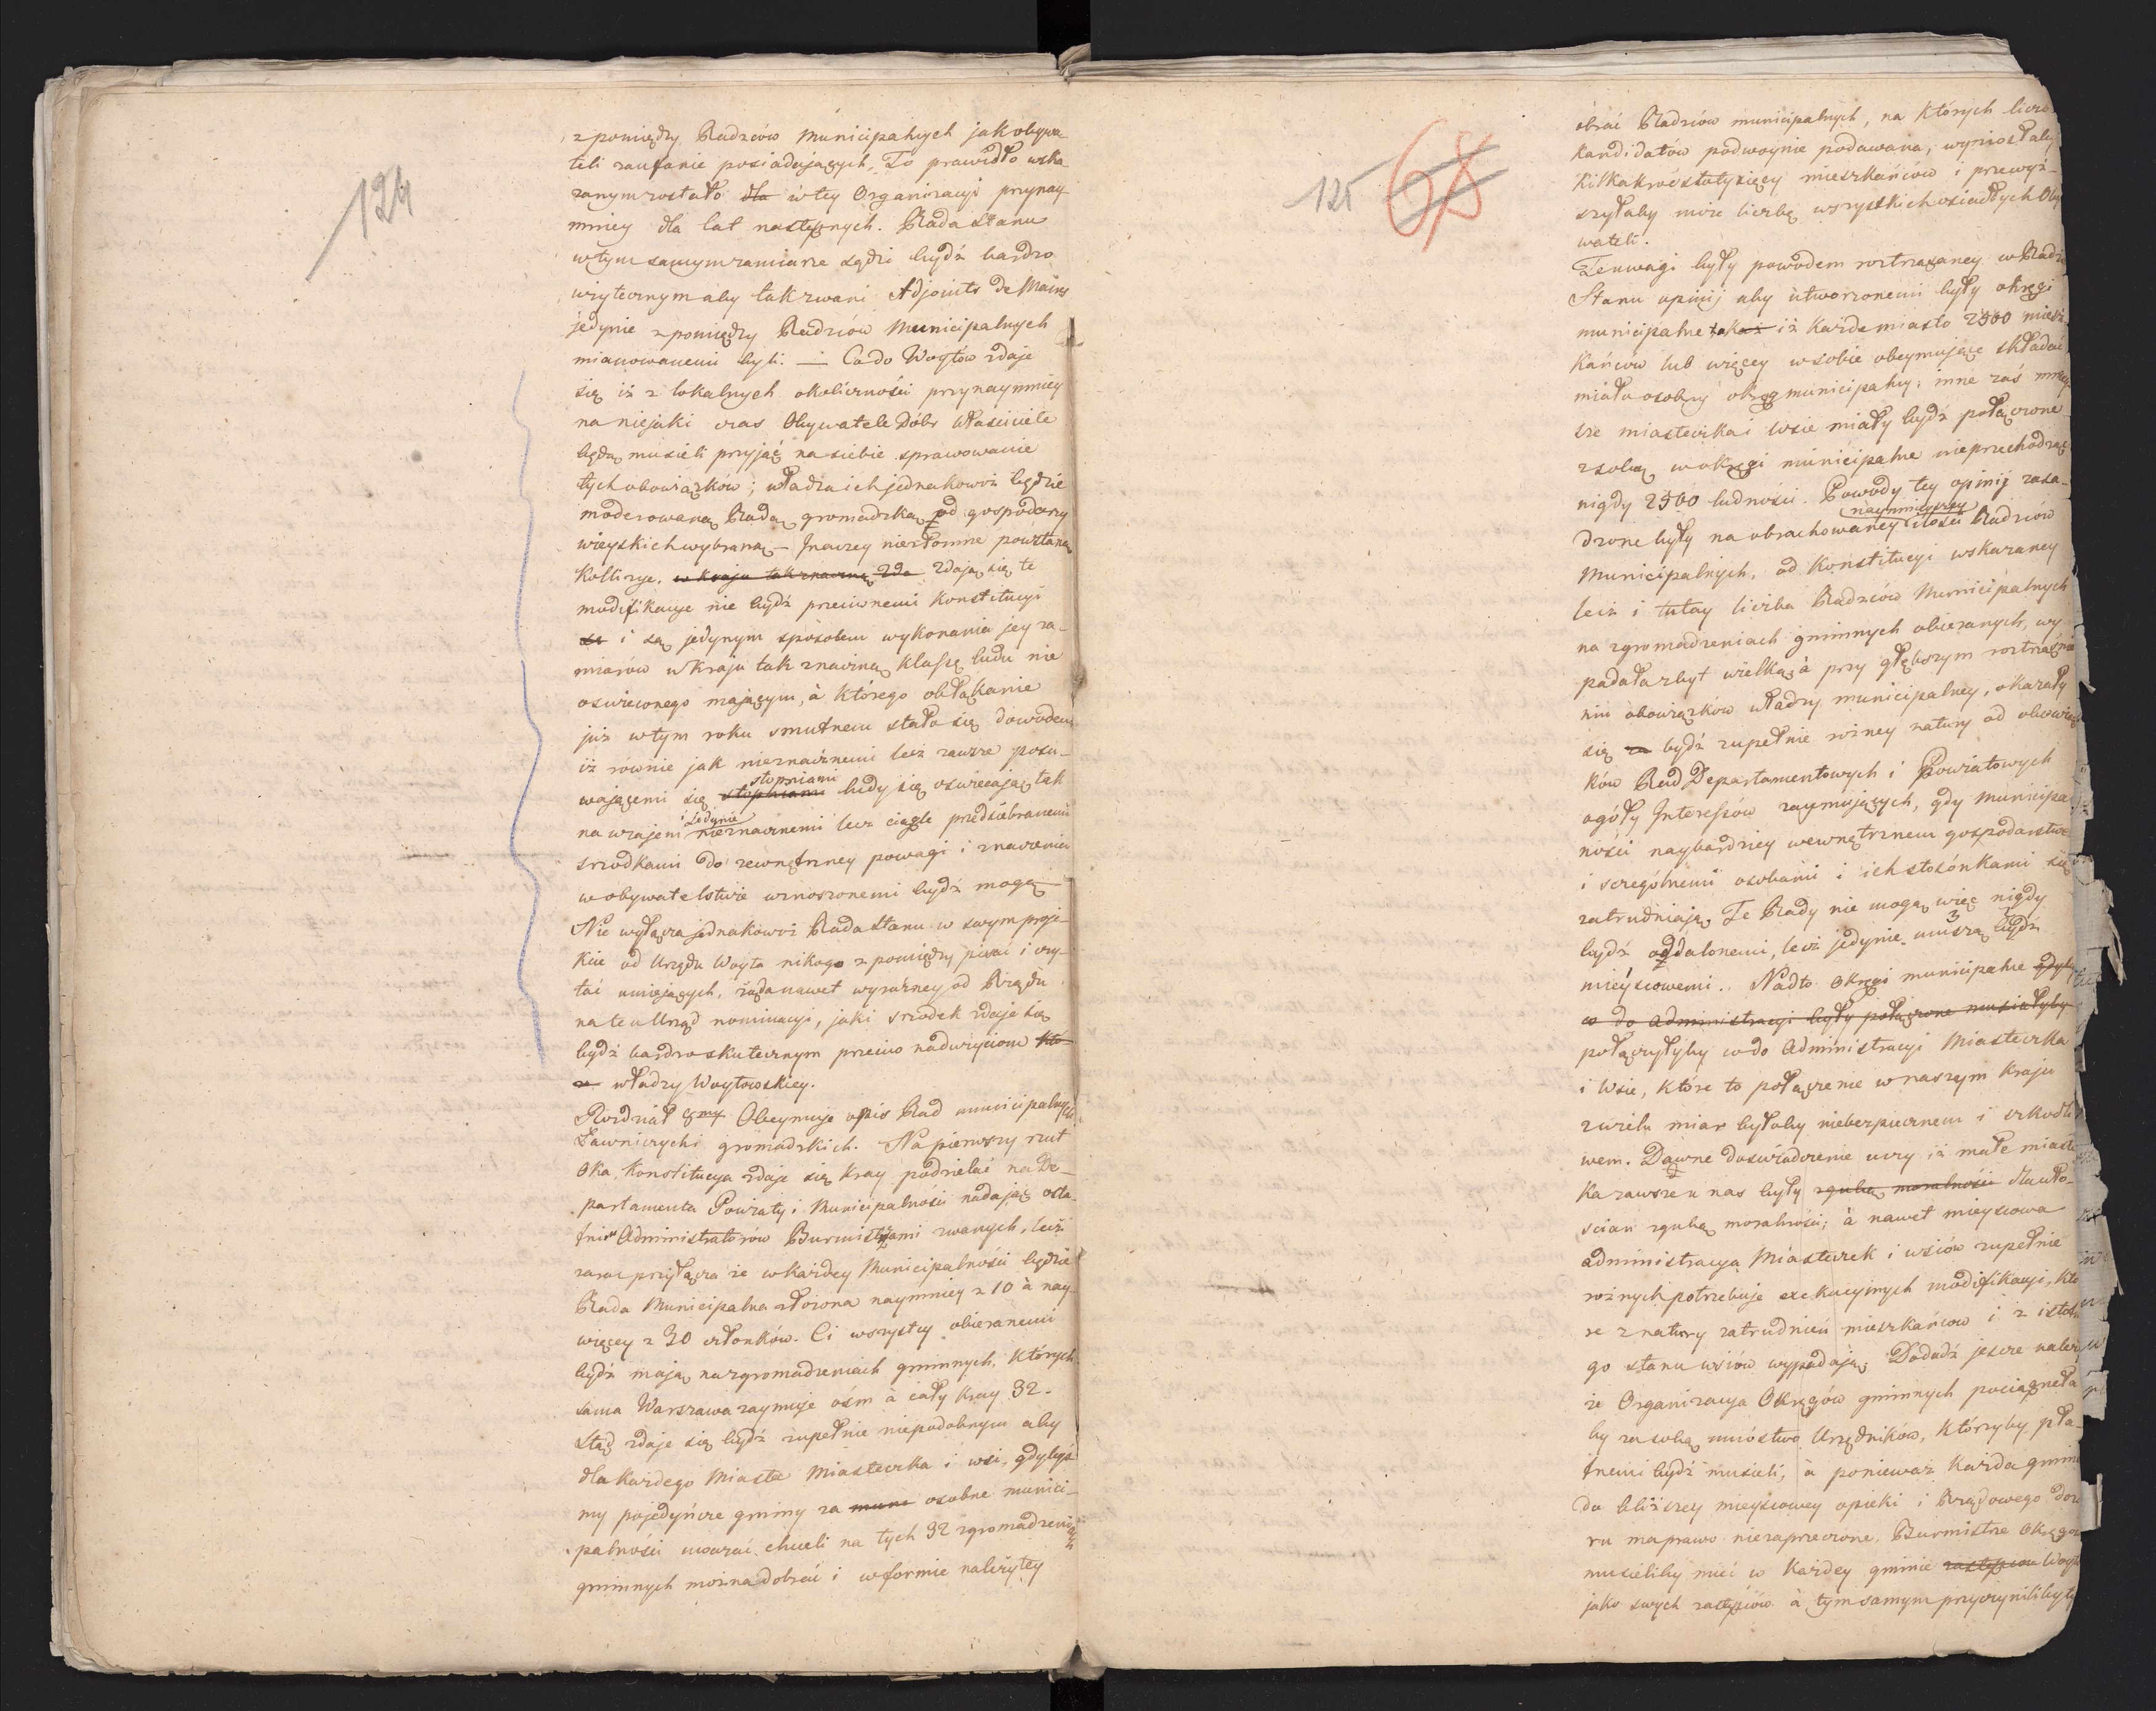 124
z pomiędzy Radzców Municipalnych jak obywa
teli zaufanie posiadających. To prawidło wska
zanym zostało dla w tey Organizacyi przynay
mniey dla lat następnych. Rada Stanu
w tym samym zamiarze sądzi bydź bardzo
użytecznym aby tak zwani Adjoints de Maires
jedynie z pomiędzy Radzców Municipalnych
mianowanemi byli. — Co do Woytów zdaje
się iż z lokalnych okoliczności przynaymniey
na niejaki czas Obywatele Dóbr Właściciele
będą musieli przyjąć na siebie sprawowanie
tych obowiązków; władza ich jednakowoż będzie
moderowaną Radą gromadzką od gospodarzy
wieyskich wybraną — Inaczey niezłomne powstaną
Kollizye. w kraju tak znaczną zda zdają się te
modifikacye nie bydź przeciwnemi Konstitucyi
są i są jedynym sposobem wykonania jey za-
miarów w kraju tak znaczną klassę ludu nie
oswieconego mającym, à którego obłąkanie
już w tym roku smutnem stało się dowodem
iż równie jak nieznacznemi lecz zawsze posu-
wającemi się stopniami stopniami ludy się oswiecają tak
nawzajem i jedynie nieznacznemi lecz ciągle przedsiebranemi
srzodkami do zewnętrzney powagi i znaczenia
w obywatelstwie wznoszonemi bydź mogą
Nie wyłącza jednakowoż Rada Stanu w swym proje-
kcie od Urzędu Woyta nikogo z pomiędzy pisać i czy-
tać umiejących, żąda nawet wyraźney od Rządu
na ten Urząd nominacyi, jaki srzodek zdaje się
bydź bardzo skutecznym przeciwo nadużyciom któ-
re władzy Woytowskiey.
Rozdział 8my Obeymuje opis Rad municipalnych
Ławniczych i gromadzkich. Na pierwszy rzut
oka, Konstitucya zdaje się kray podzielać na De-
partamenta Powiaty i Municipalności nadając osta-
tnim Administratorów Burmistrzami zwanych, lecz
zaraz przyłącza że w każdey Municipalności będzie
Rada Municipalna złożona naymniey z 10 à nay-
więcey z 30 członków. Ci wszyscy obieranemi
bydź mają na zgromadzeniach gminnych, których
sama Warszawa zaymuje ośm à cały kray 32.
Ztąd zdaje się bydź zupełnie niepodobnym aby
dla każdego Miasta Miasteczka i wsi, gdybyś
my pojedyńcze gminy za muni osobne munici-
palności uważać chcieli na tych 32 zgromadzeniach
gminnych można dobrać i w formie należytey
125 68
obrać Radzców municipalnych, na których liczb
kandidatów podwoynie podawana, wyniosłaby
kilkakroć stotysięcy mieszkańców i przewyż-
szyłaby może liczbę wszystkich osiadłych Oby
wateli.
Te uwagi były powodem roztrząsaney w Radzie
Stanu opinij aby utworzonemi były okręgi
municipalne tak aż iż każde miasto 2500 miesz-
kańców lub więcey w sobie obeymujące składać
miało osobny okrąg municipalny; inne zaś mniey
sze miasteczka i wsie miały bydź połączone
z sobą w okręgi municipalne nieprzechodząc
nigdy 2500 ludności. Powody tey opinij zasa-
dzone były na obrachowaney naymnieyszey ilości Radzców
Municipalnych, od Konstitucyi wskazaney
lecz i tutay liczba Radzców Municipalnych
na zgromadzeniach gminnych obieranych, wy-
padała zbyt wielką à przy głębszym roztrząśnie
niu obowiązków władzy municipalney, okazały
się za bydź zupełnie rożney natury od obowiąz
ków Rad Departamentowych i Powiatowych
ogóły Interessów zaymujących, gdy Municipal
ności naybardziey wewnętrznem gospodarstwem
i szczególnemi osobami i ich stosónkami się
zatrudniają. Te Rady nie mogą więc nigdy
bydź oddalonemi, lecz jedynie muszą bydź
mieyscowemi. Nadto okręgi municipalne gdyby
co do administracyi były połączone musiałyby
połączyłyby co do Administracyi Miasteczka
i Wsie, które to połączenie w naszym kraju
z wielu miar byłoby niebezpiecznem i szkodli
wem. Dawne doświadczenie uczy iż małe miaste
ka zawsze u nas były zgubą moralności dla wło-
scian zgubą moralności; à nawet mieyscowa
administracya Miasteczek i wsiów zupełnie
rożnych potrzebuje exekucyinych modifikacyi, któ
re z natury zatrudnień mieszkańców i z istotne
go stanu wsiów wypadają. Dodadź jeszcze należy
że Organizacya Okręgów gminnych pociągneła
by za sobą mnóstwo Urzędników, którzyby pła-
tnemi bydź musieli, à ponieważ każda gmina
do bliższey mieyscowey opieki i Rządowego dozo
ru ma prawo niezaprzeczone, Burmistrze Okręgów
musieliby mieć w każdey gminie zastępców Woytów
jako swych zastępców à tym samym przyczyniliby